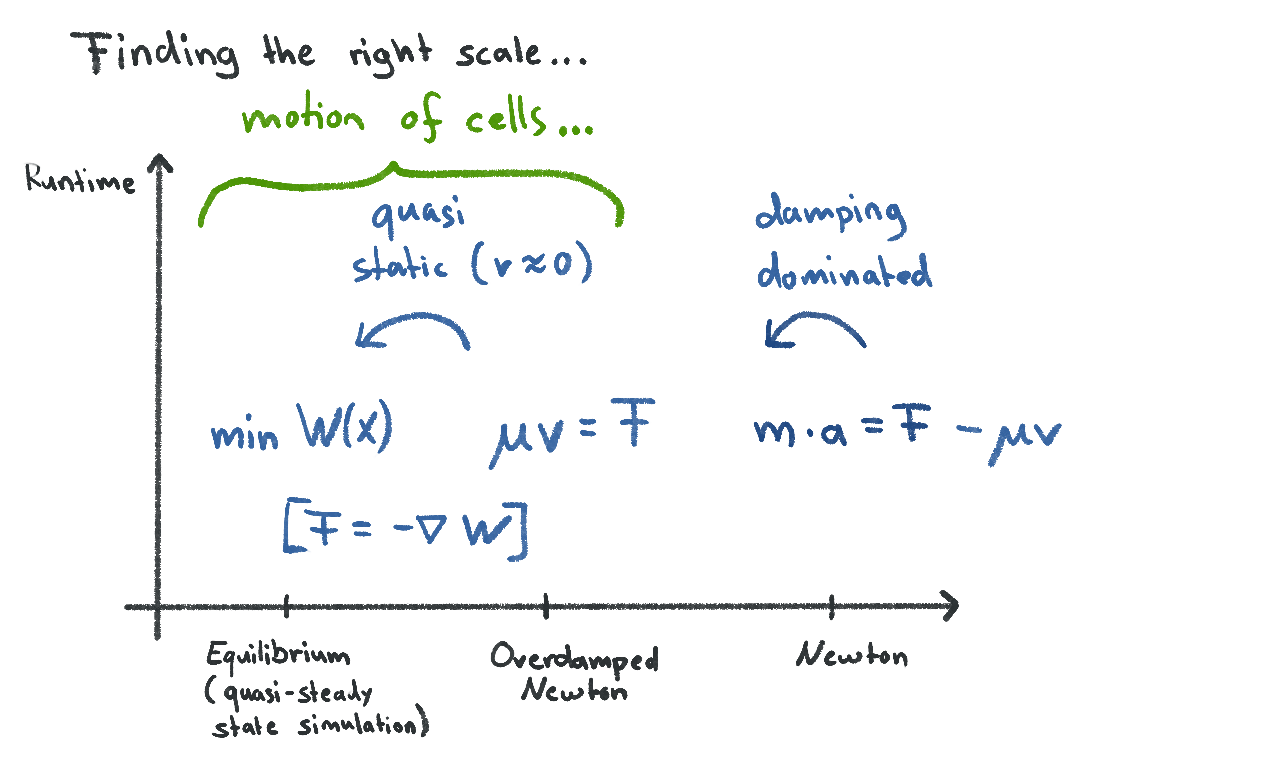 Finding the right scale...
motion of cells...
Runtime
quasi
static (v ≈ 0)
damping
dominated
min W(x)
μv = F
m·a = F - μv
[F = -∇ W]
Equilibrium
(quasi-steady
state simulation)
Overdamped
Newton
Newton